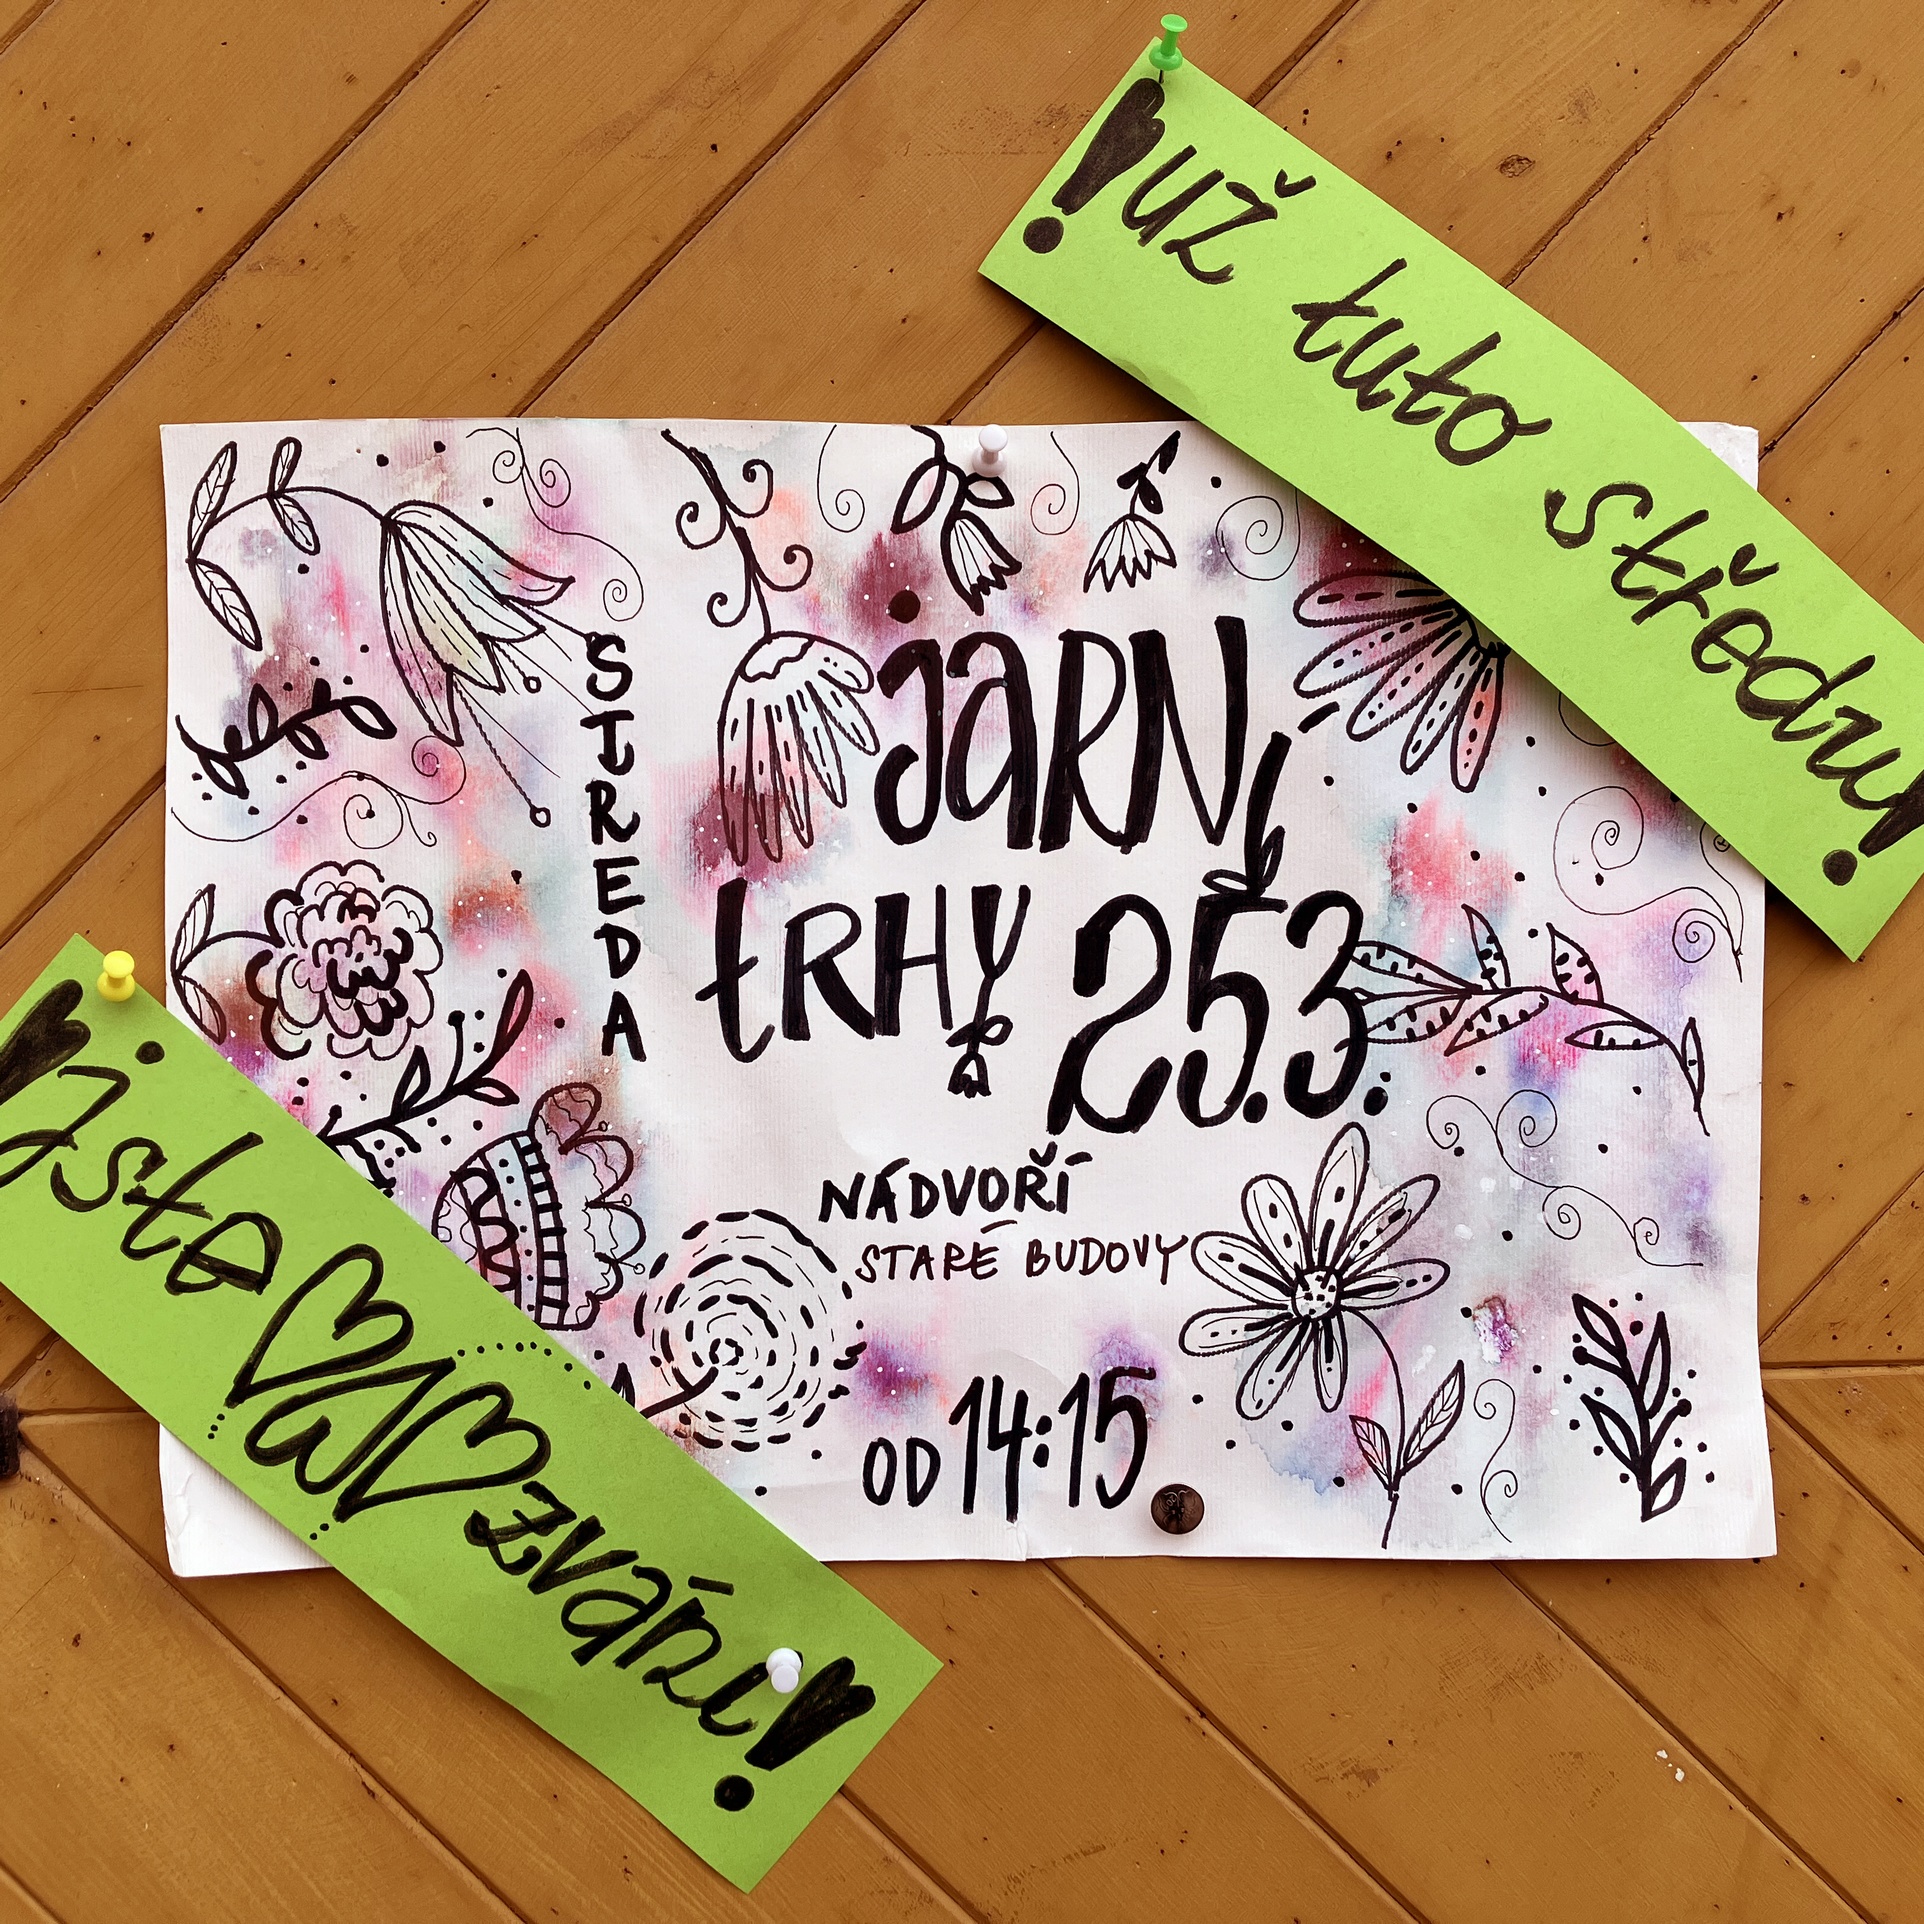 !už tuto středu!
STŘEDA
JARNÍ
TRHY 25.3.
NÁDVOŘÍ
STARÉ BUDOVY
OD 14:15
!jste zváni!